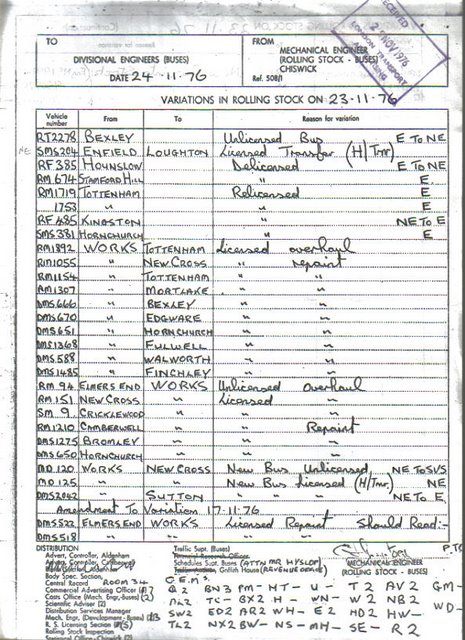 RECEIVED
2 NOV 1976
LONDON TRANSPORT
TO
DIVISIONAL ENGINEERS (BUSES)
DATE 24-11-76
FROM
MECHANICAL ENGINEER
(ROLLING STOCK - BUSES)
CHISWICK
Ref. 508/1
VARIATIONS IN ROLLING STOCK ON 23-11-76
Vehicle number From To Reason for variation
RT2278 BEXLEY Unlicensed Bus E TO NE
NE SMS204 ENFIELD LOUGHTON Licensed Transfer (H/Tmr)
RF385 HOUNSLOW Delicensed E TO NE
RM674 STAMFORD HILL " E.
RM1719 TOTTENHAM Relicensed E
1753 " " E
RF485 KINGSTON " NE TO E
SMS381 HORNCHURCH " E
RM1892 WORKS TOTTENHAM Licensed overhaul
RM1055 " NEW CROSS " repaint
RM1154 " TOTTENHAM " "
AM1307 " MORTLAKE " "
DMS666 " BEXLEY " "
DMS670 " EDGWARE " "
DMS651 " HORNCHURCH " "
DMS1368 " FULWELL " "
DMS588 " WALWORTH " "
DMS1485 " FINCHLEY " "
RM94 ELMERS END WORKS Unlicensed Overhaul
RM151 NEW CROSS " Licensed "
SM9 CRICKLEWOOD " " "
RM1210 CAMBERWELL " " Repaint
DMS1275 BROMLEY " " "
DMS650 HORNCHURCH " " "
MD120 WORKS NEW CROSS New Bus Unlicensed NE TO SVS
MD125 " " New Bus Licensed (H/Tmr) NE
DMS2042 " SUTTON " " " NE TO E
Amendment To Variation 17-11-76
DMS522 ELMERS END WORKS Licensed Repaint Should Read:-
DMS518 " " " "
P.T.O
DISTRIBUTION
Advert, Controller, Aldenham
Body Spec. Section,
Central Record ROOM 34
Commercial Advertising Officer
Costs Office (Mech. Eng.-Buses) (2)
Scientific Adviser (2)
Distribution Services Manager
Mech. Eng. (Development - Buses)
R. S. Licensing Section
Rolling Stock Inspection
Traffic Supt. (Buses)
Schedules Supt. Buses (ATTN MR HYSLOP)
Griffith House (REVENUE OFFICE)
MECHANICAL ENGINEER
(ROLLING STOCK - BUSES)
O.E.M's.
Q2 BN3 PM- HT- U- T2 AV2 GM-
AL2 TC- BX2 H- WN- W2 NB2 WD-
SW2 ED2 AR2 WH- E2 HD2 HW-
TL2 NX2 BW- NS- MH- SE- R2